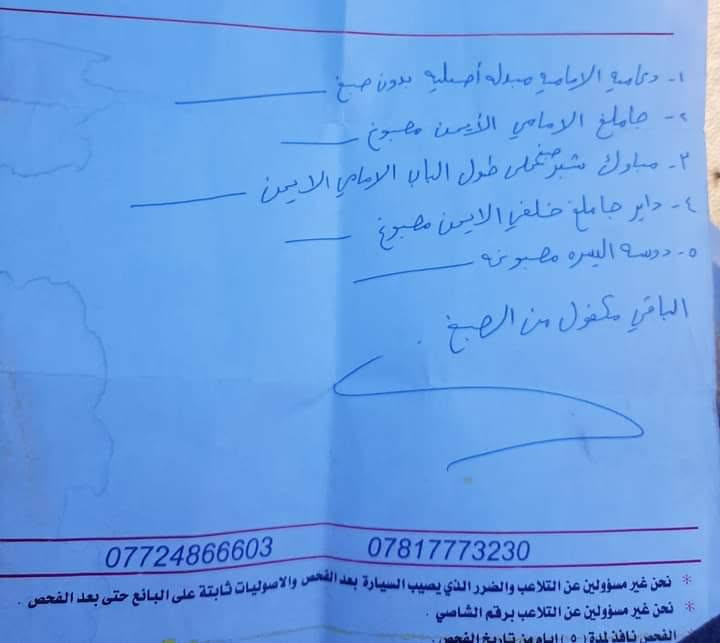 ١- دعامية الامامية مبدله أصلية بدون صبغ
٢- جاملغ الامامي الأيمن مصبوغ
٣- مبارك شبر صبغ محلي طول الباب الامامي الايمن
٤- داير جاملغ خلفي الايمن مصبوغ
٥- دوسة اليسره مصبوغه
الباقي مكفول من الصبغ .
07724866603 07817773230
* نحن غير مسؤولين عن التلاعب والضرر الذي يصيب السيارة بعد الفحص والاصوليات ثابتة على البائع حتى بعد الفحص .
* نحن غير مسؤولين عن التلاعب برقم الشاصي .
الفحص نافذ لمدة (٥) ايام من تاريخ الفحص .